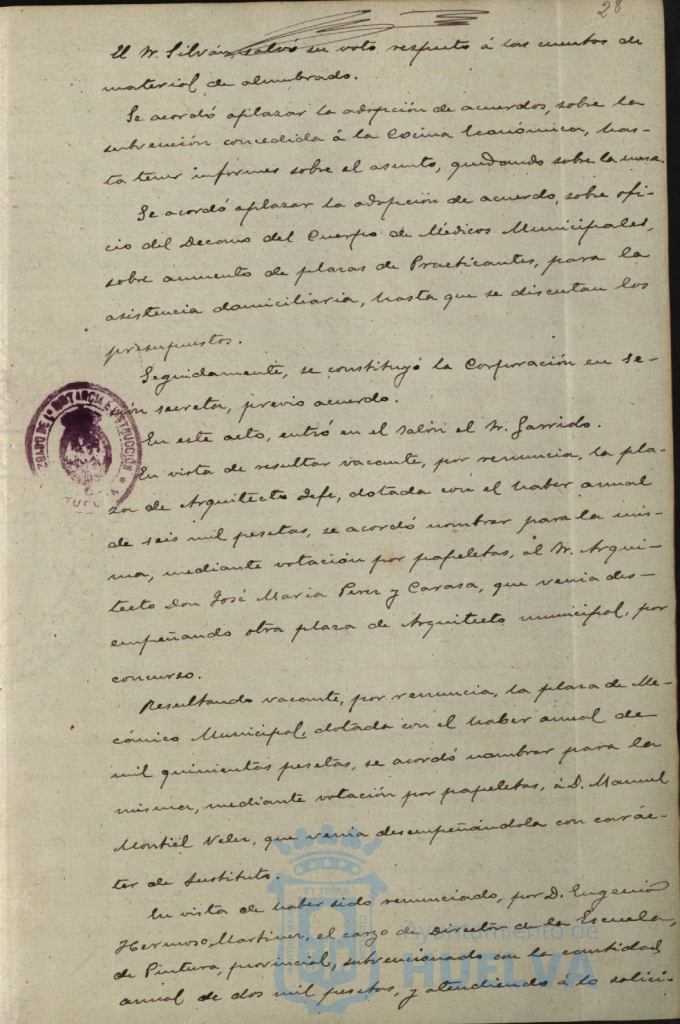 28
El Sr. Silván, salvó su voto respecto á las cuentas de
material de alumbrado.
Se acordó aplazar la adopción de acuerdos, sobre la
subvención concedida á la Cocina Económica, has-
ta tener informes sobre el asunto, quedando sobre la mesa.
Se acordó aplazar la adopción de acuerdo, sobre ofi-
cio del Decano del Cuerpo de Médicos Municipales,
sobre aumento de plazas de Practicantes, para la
asistencia domiciliaria, hasta que se discutan los
presupuestos.
Seguidamente, se constituyó la Corporación en se-
sión secreta, previo acuerdo.
En este acto, entró en el salón el Sr. Garrido.
En vista de resultar vacante, por renuncia, la pla-
za de Arquitecto Jefe, dotada con el haber anual
de seis mil pesetas, se acordó nombrar para la mis-
ma, mediante votación por papeletas, al Sr. Arqui-
tecto Don José Maria Perez y Carasa, que venia des-
empeñando otra plaza de Arquitecto municipal, por
concurso.
Resultando vacante, por renuncia, la plaza de Me-
cánico Municipal, dotada con el haber anual de
mil quinientas pesetas, se acordó nombrar para la
misma, mediante votación por papeletas, á D. Manuel
Montiel Velez, que venia desempeñándola con carác-
ter de sustituto.
En vista de haber sido renunciado, por D. Eugenio
Hermoso Martinez, el cargo de Director de la Escuela,
de Pintura, provincial, subvencionado con la cantidad
anual de dos mil pesetas, y atendiendo á lo solici-
JUZGADO DE 1ª INSTANCIA E INSTRUCCION
HUELVA
Ayuntamiento de
HUELVA